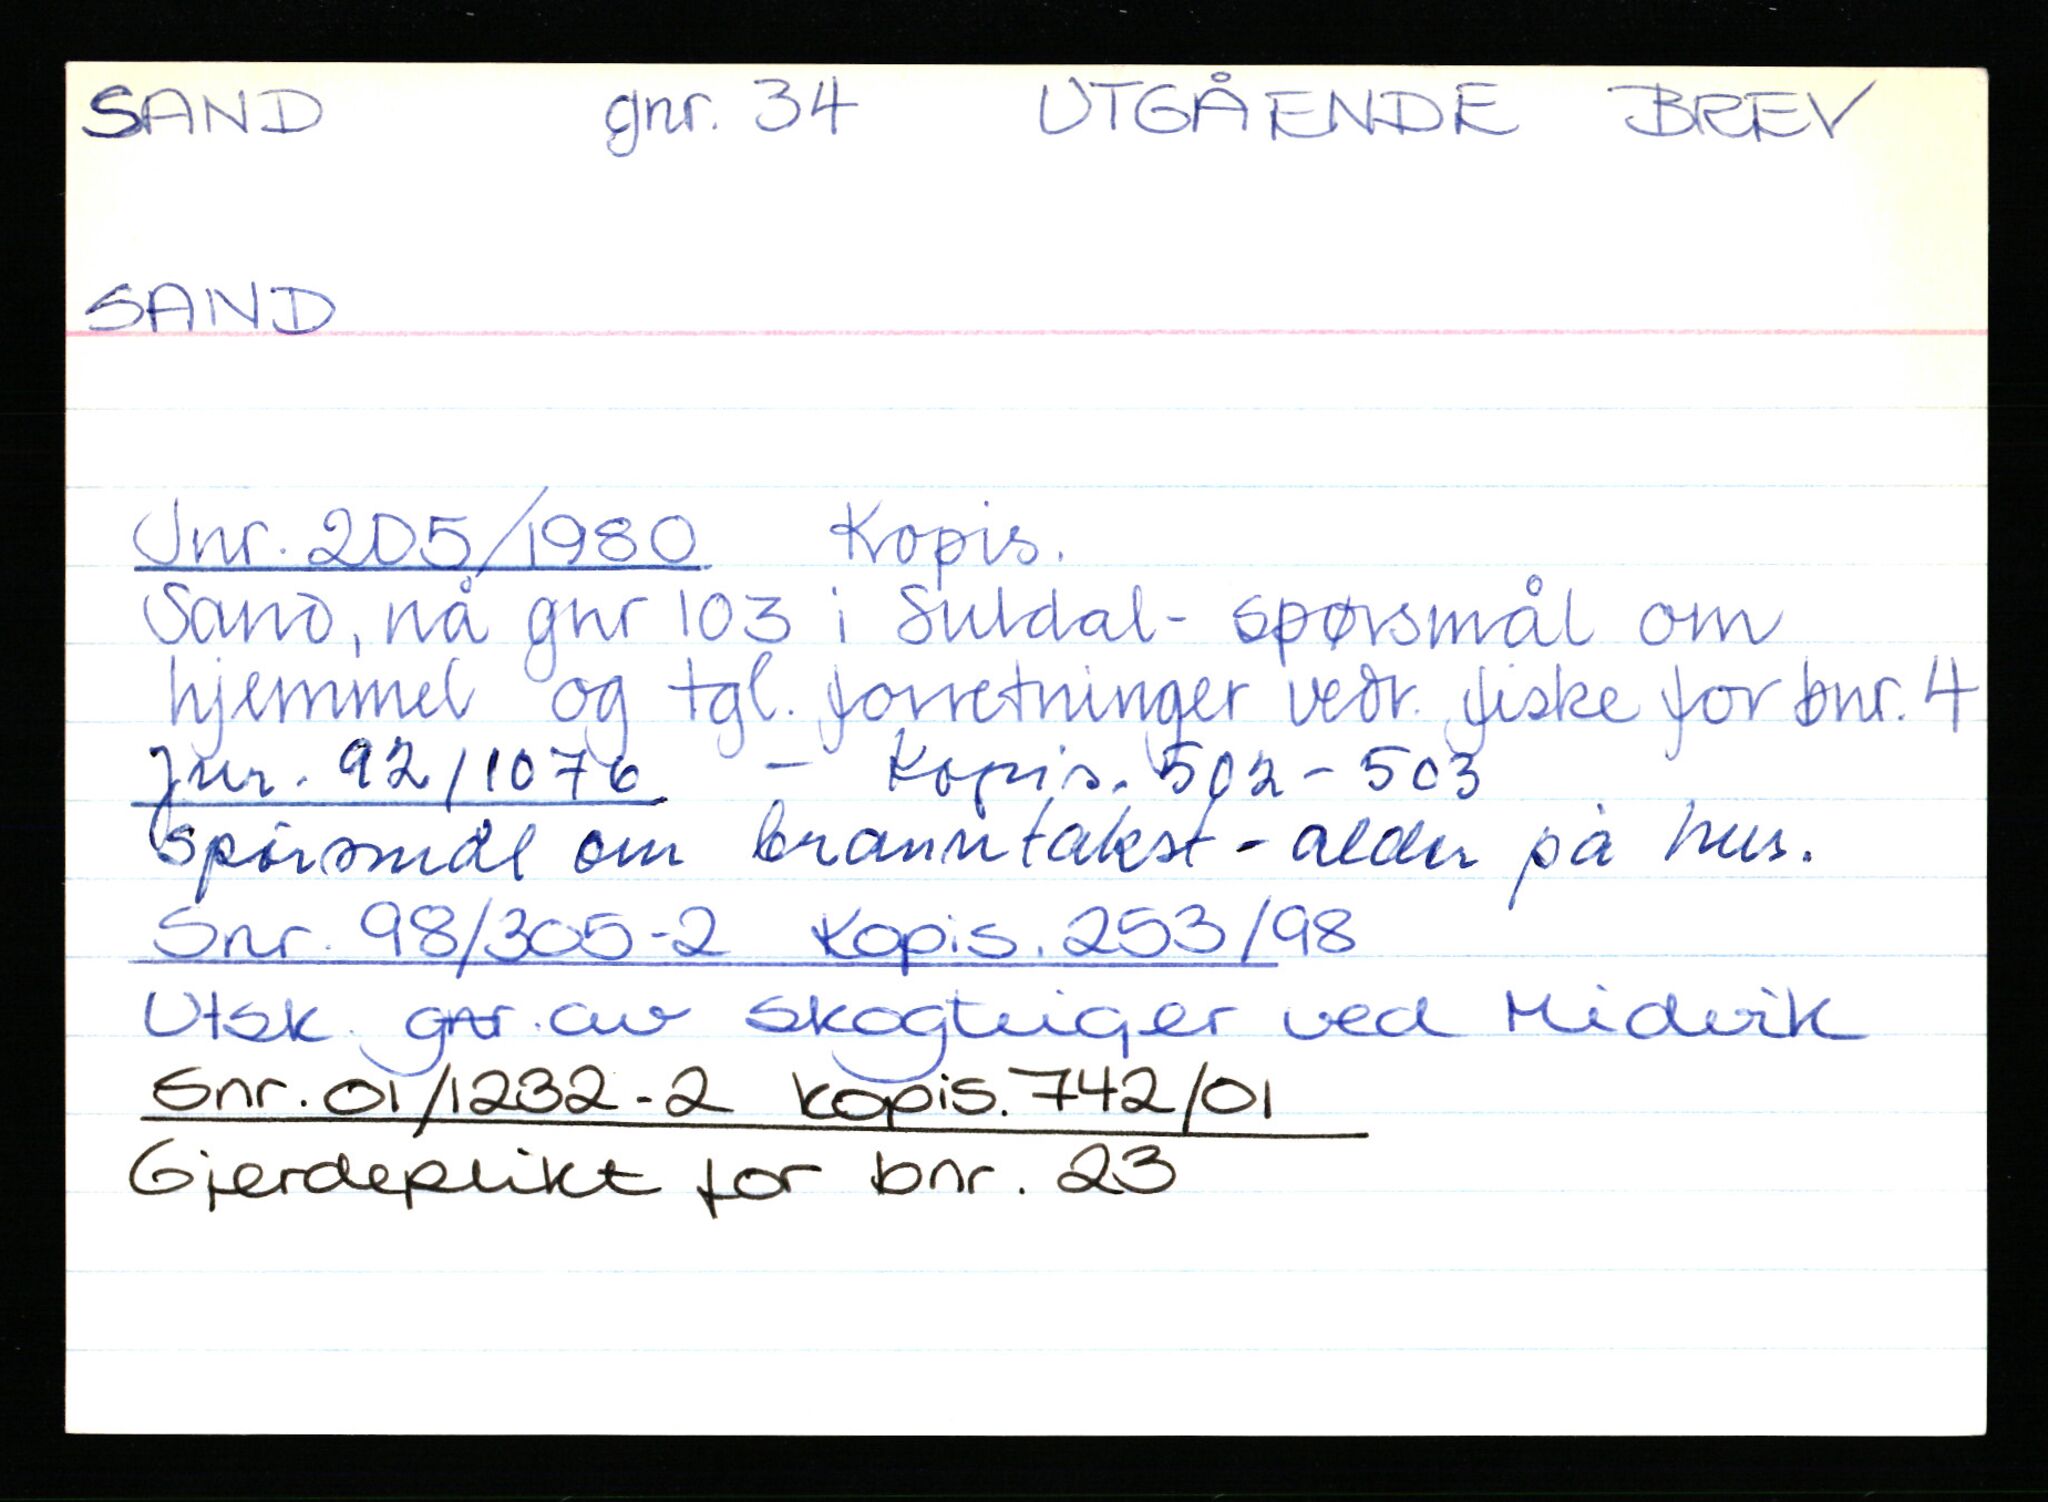 SAND gnr. 34 UTGÅENDE BREV
SAND
Jnr. 205/1980 Kopis.
Sand, nå gnr 103 i Suldal - spørsmål om
hjemmel og tgl. forretninger vedr. fiske for bnr. 4
Jnr. 92/1076 - Kopis. 502-503
Spørsmål om branntakst - alder på hus.
Snr. 98/305-2 Kopis. 253/98
Utsk. gnr. av skogteiger ved Midvik
Snr. 01/1232-2 kopis. 742/01
Gjerdeplikt for bnr. 23